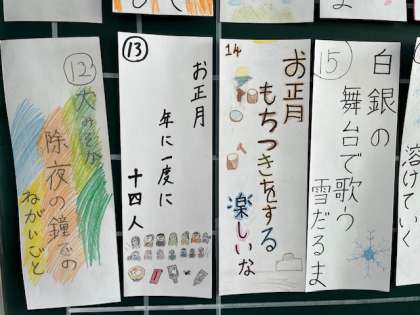 ⑫
大みそか
除夜の鐘での
ねがいごと
⑬
お正月
年に一度に
十四人
14
お正月
もちつきをする
楽しいな
⑮
白銀の
舞台で歌う
雪だるま
溶けていく